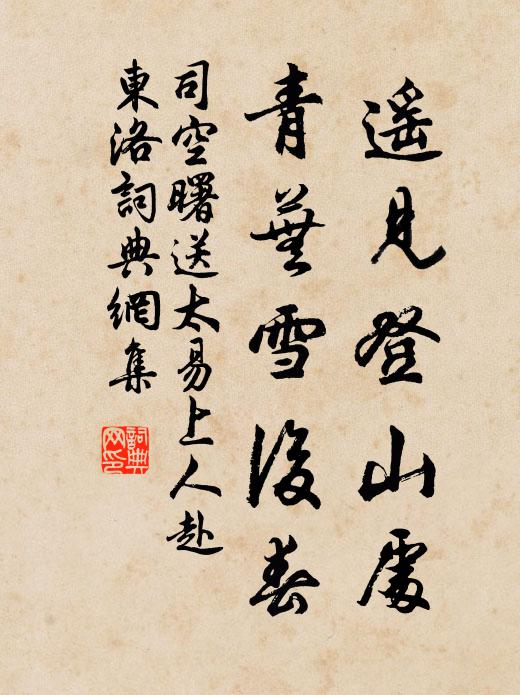 遥見登山處
青蕪雪後春
司空曙送太易上人赴
東洛詞典網集
詞典网印